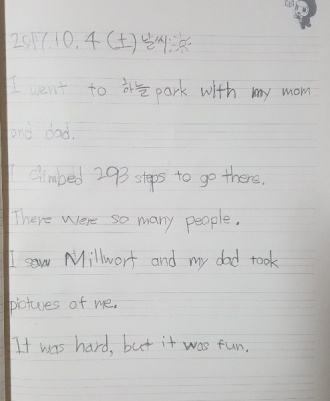 2017.10.4 (土) 날씨:☀
I went to 하늘 park with my mom
and dad.
I climbed 293 steps to go there.
There were so many people.
I saw Millwort and my dad took
pictures of me.
It was hard, but it was fun.